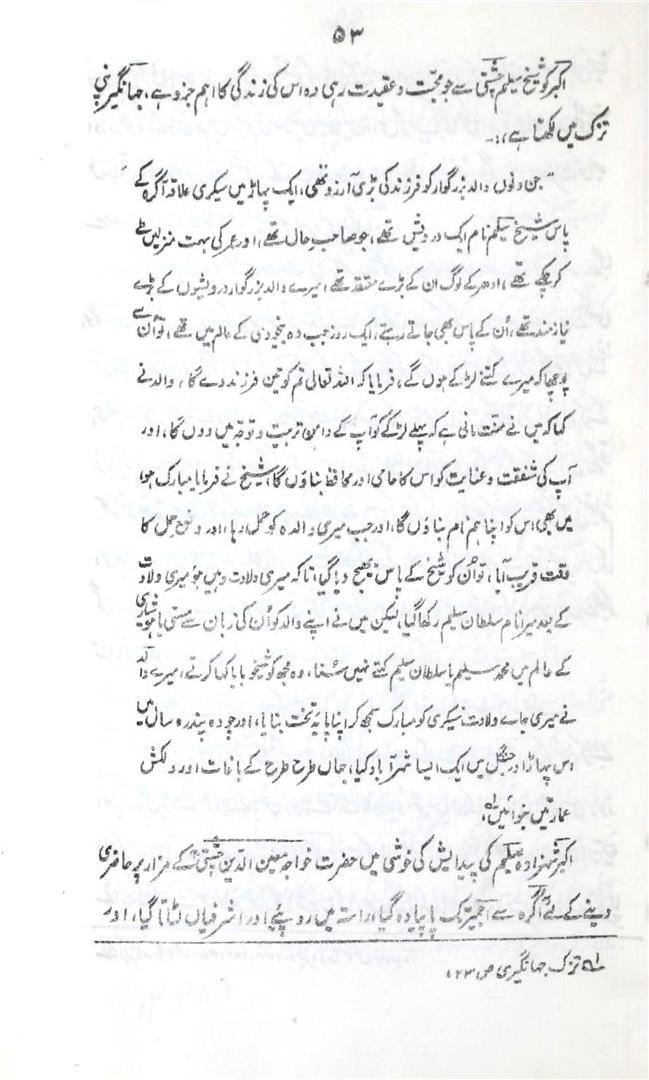 ۵۳
اکبر کو شیخ سلیم چشتی سے جو محبت و عقیدت رہی وہ اس کی زندگی کا اہم جزو ہے، جہانگیر اپنی
تزک میں لکھتا ہے:۔
"جن دنوں والد بزرگوار کو فرزند کی بڑی آرزو تھی، ایک پہاڑ میں سیکری علاقہ آگرہ کے
پاس شیخ سلیم نام ایک درویش تھے، جو صاحب حال تھے، اور عمر کی بہت منزلیں طے
کر چکے تھے، ادھر کے لوگ ان کے بڑے معتقد تھے، میرے والد بزرگوار درویشوں کے بڑے
نیاز مند تھے، اُن کے پاس بھی جاتے رہتے، ایک روز جب وہ بیخودی کے عالم میں تھے، تو اُن سے
پوچھا کہ میرے کتنے لڑکے ہوں گے، فرمایا کہ اللہ تعالی تم کو تین فرزند دے گا، والد نے
کہا کہ میں نے منت مانی ہے کہ پہلے لڑکے کو آپ کے دامن تربیت و توجہ میں دوں گا، اور
آپ کی شفقت و عنایت کو اس کا حامی اور محافظ بناؤں گا، شیخ نے فرمایا مبارک ہو!
میں بھی اس کو اپنا ہم نام بناؤں گا، اور جب میری والدہ کو حمل رہا، اور وضع حمل کا
وقت قریب آیا، تو اُن کو شیخ کے پاس بھیج دیا گیا، تاکہ میری ولادت وہیں ہو، میری ولادت
کے بعد میرا نام سلطان سلیم رکھا گیا، لیکن میں نے اپنے والد کو اُن کی زبان سے مستی یا ہوشیاری
کے عالم میں محمد سلیم یا سلطان سلیم کہتے نہیں سُنا، وہ مجھ کو شیخو بابا کہا کرتے، میرے والد
نے میری جاے ولادت سیکری کو مبارک سمجھ کر اپنا پایۂ تخت بنایا، اور چودہ پندرہ سال میں
اس پہاڑ اور جنگل میں ایک ایسا شہر آباد کیا، جہاں طرح طرح کے باغات اور دلکش
عمارتیں بنوائیں۱؎،
اکبر شہزادہ سلیم کی پیدایش کی خوشی میں حضرت خواجہ معین الدین چشتیؒ کے مزار پر حاضری
دینے کے لئے آگرہ سے اجمیر تک پا پیادہ گیا، راستہ میں روپئے اور اشرفیاں لٹاتا گیا، اور
۱؎ تزک جہانگیری ص